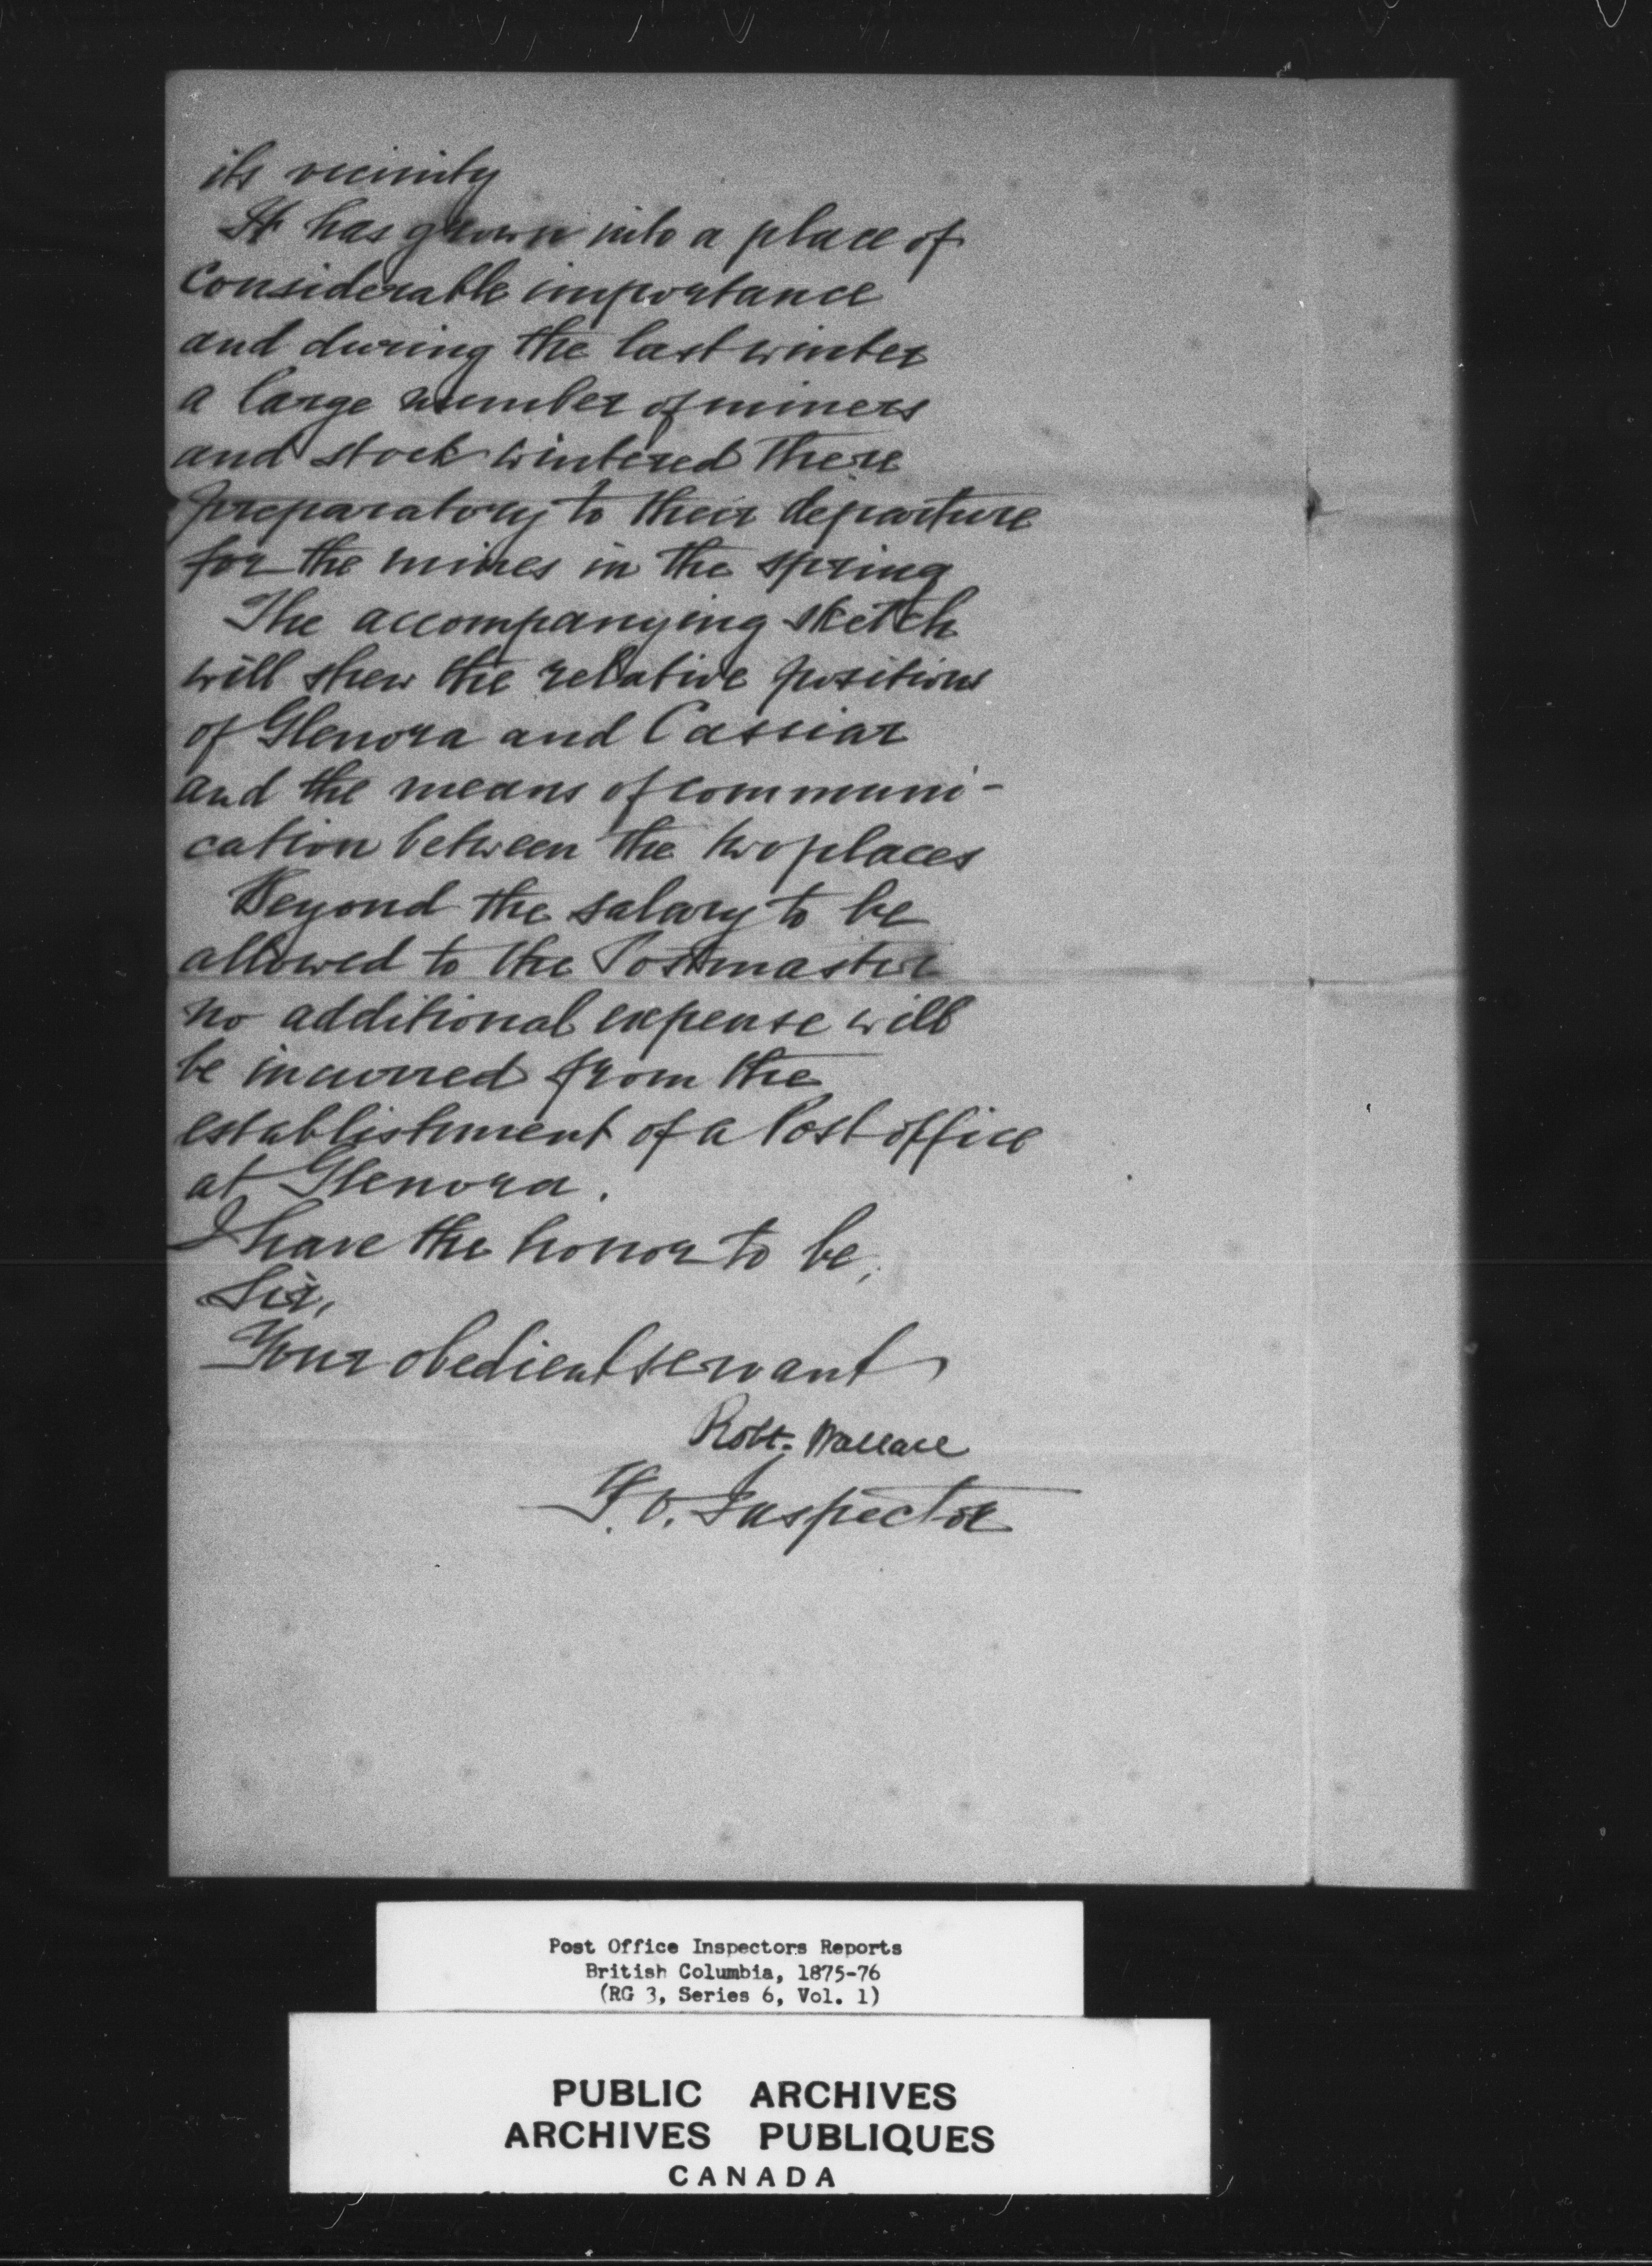 its vicinity
It has grown into a place of
considerable importance
and during the last winter
a large number of miners
and stock wintered there
preparatory to their departure
for the mines in the spring
The accompanying sketch
will shew the relative positions
of Glenora and Cassiar
and the means of communi-
cation between the two places
Beyond the salary to be
allowed to the Postmaster
no additional expense will
be incurred from the
establishment of a Post office
at Glenora.
I have the honor to be,
Sir,
Your obedient servant
Robt. Wallace
P.O. Inspector
Post Office Inspectors Reports
British Columbia, 1875-76
(RG 3, Series 6, Vol. 1)
PUBLIC ARCHIVES
ARCHIVES PUBLIQUES
CANADA